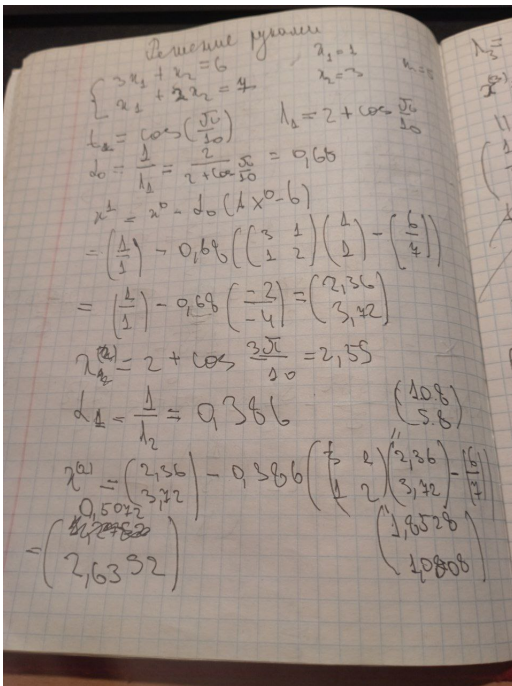 Решение руками
3x₁ + x₂ = 6
x₁ + 2x₂ = 7
x₁ = 1
x₂ = 3
t₁ = cos(π/10)
λ₁ = 2 + cos π/10
α₀ = 1/λ₁ = 2/(2 + cos π/10) = 0,68
x¹ = x⁰ - α₀(Ax⁰ - b)
= (1 1) - 0,68((3 1 1 2)(1 1) - (6 7))
= (1 1) - 0,68(-2 -4) = (2,36 3,72)
= 2 + cos 3π/10 = 2,59
α₁ = 1/λ₂ = 0,386
(10.8 5.8)
x⁽²⁾ = (2,36 3,72) - 0,386( 1 2)(2,36 3,72) - (6 7)
0,5072
= ( 2,6392)
(1,8528 1,0808)
λ₃ =